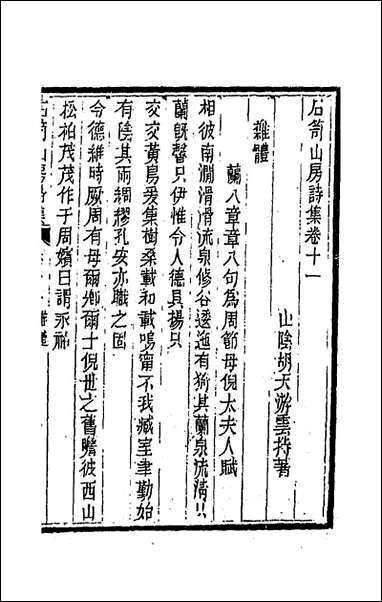 石笥山房詩集卷十一
山陰胡天游雲持著
雜體
蘭八章章八句為周節母倪太夫人賦
相彼南澗滑滑流泉修谷逶迤有猗其蘭泉流清只
蘭旣馨只伊惟令人德具揚只
交交黃鳥爰集樹桑載和載鳴甯不我臧室聿勤始
有陰其雨綢繆孔安亦職之固
令德維時厥周有母爾鄉爾士倪世之舊瞻彼西山
松柏茂茂作于周嬪曰謂永
石笥山房詩集